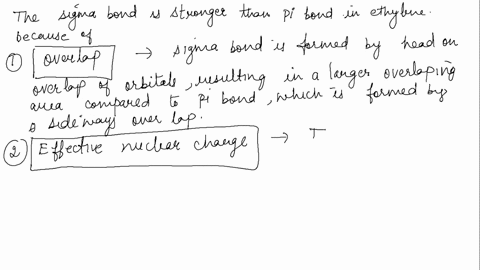 The sigma bond is stronger than pi bond in ethylene.
because of
① overlap → sigma bond is formed by head on
overlap of orbitals, resulting in a larger overlaping
area compared to pi bond, which is formed by
a sideways over lap.
② Effective nuclear change → T